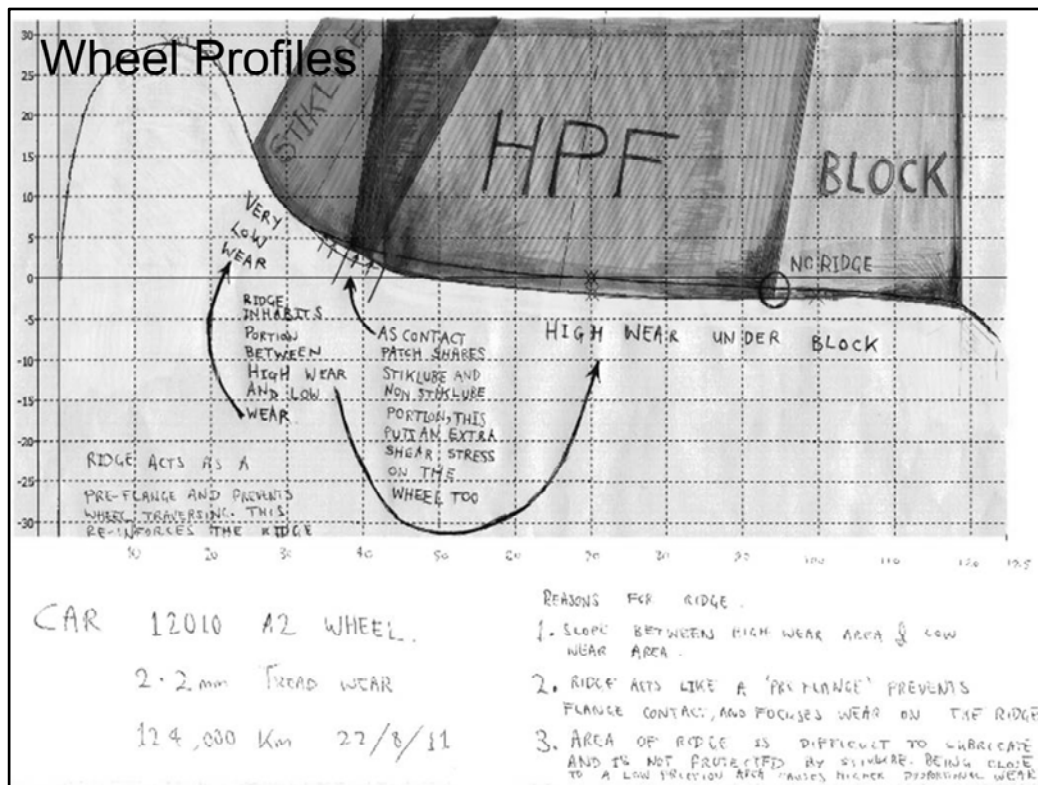 Wheel Profiles
STIKLUBE
HPF
BLOCK
30
25
20
15
10
5
0
-5
-10
-15
-20
-25
-30
VERY
LOW
WEAR
NO RIDGE
RIDGE
INHABITS
PORTION
BETWEEN
HIGH WEAR
AND LOW
WEAR.
AS CONTACT
PATCH SHARES
STIKLUBE AND
NON STIKLUBE
PORTION, THIS
PUTS AN EXTRA
SHEAR STRESS
ON THE
WHEEL TOO
HIGH WEAR UNDER BLOCK
RIDGE ACTS AS A
PRE-FLANGE AND PREVENTS
WHEEL TRAVERSING. THIS
RE-INFORCES THE RIDGE
10 20 30 40 50 60 70 80 90 100 110 120 125
CAR 12010 A2 WHEEL.
2.2mm TREAD WEAR
124,000 Km 22/8/11
REASONS FOR RIDGE.
1. SLOPE BETWEEN HIGH WEAR AREA & LOW
WEAR AREA.
2. RIDGE ACTS LIKE A 'PRE FLANGE' PREVENTS
FLANGE CONTACT, AND FOCUSES WEAR ON THE RIDGE
3. AREA OF RIDGE IS DIFFICULT TO LUBRICATE
AND IS NOT PROTECTED BY STIKLUBE. BEING CLOSE
TO A LOW FRICTION AREA CAUSES HIGHER WEAR